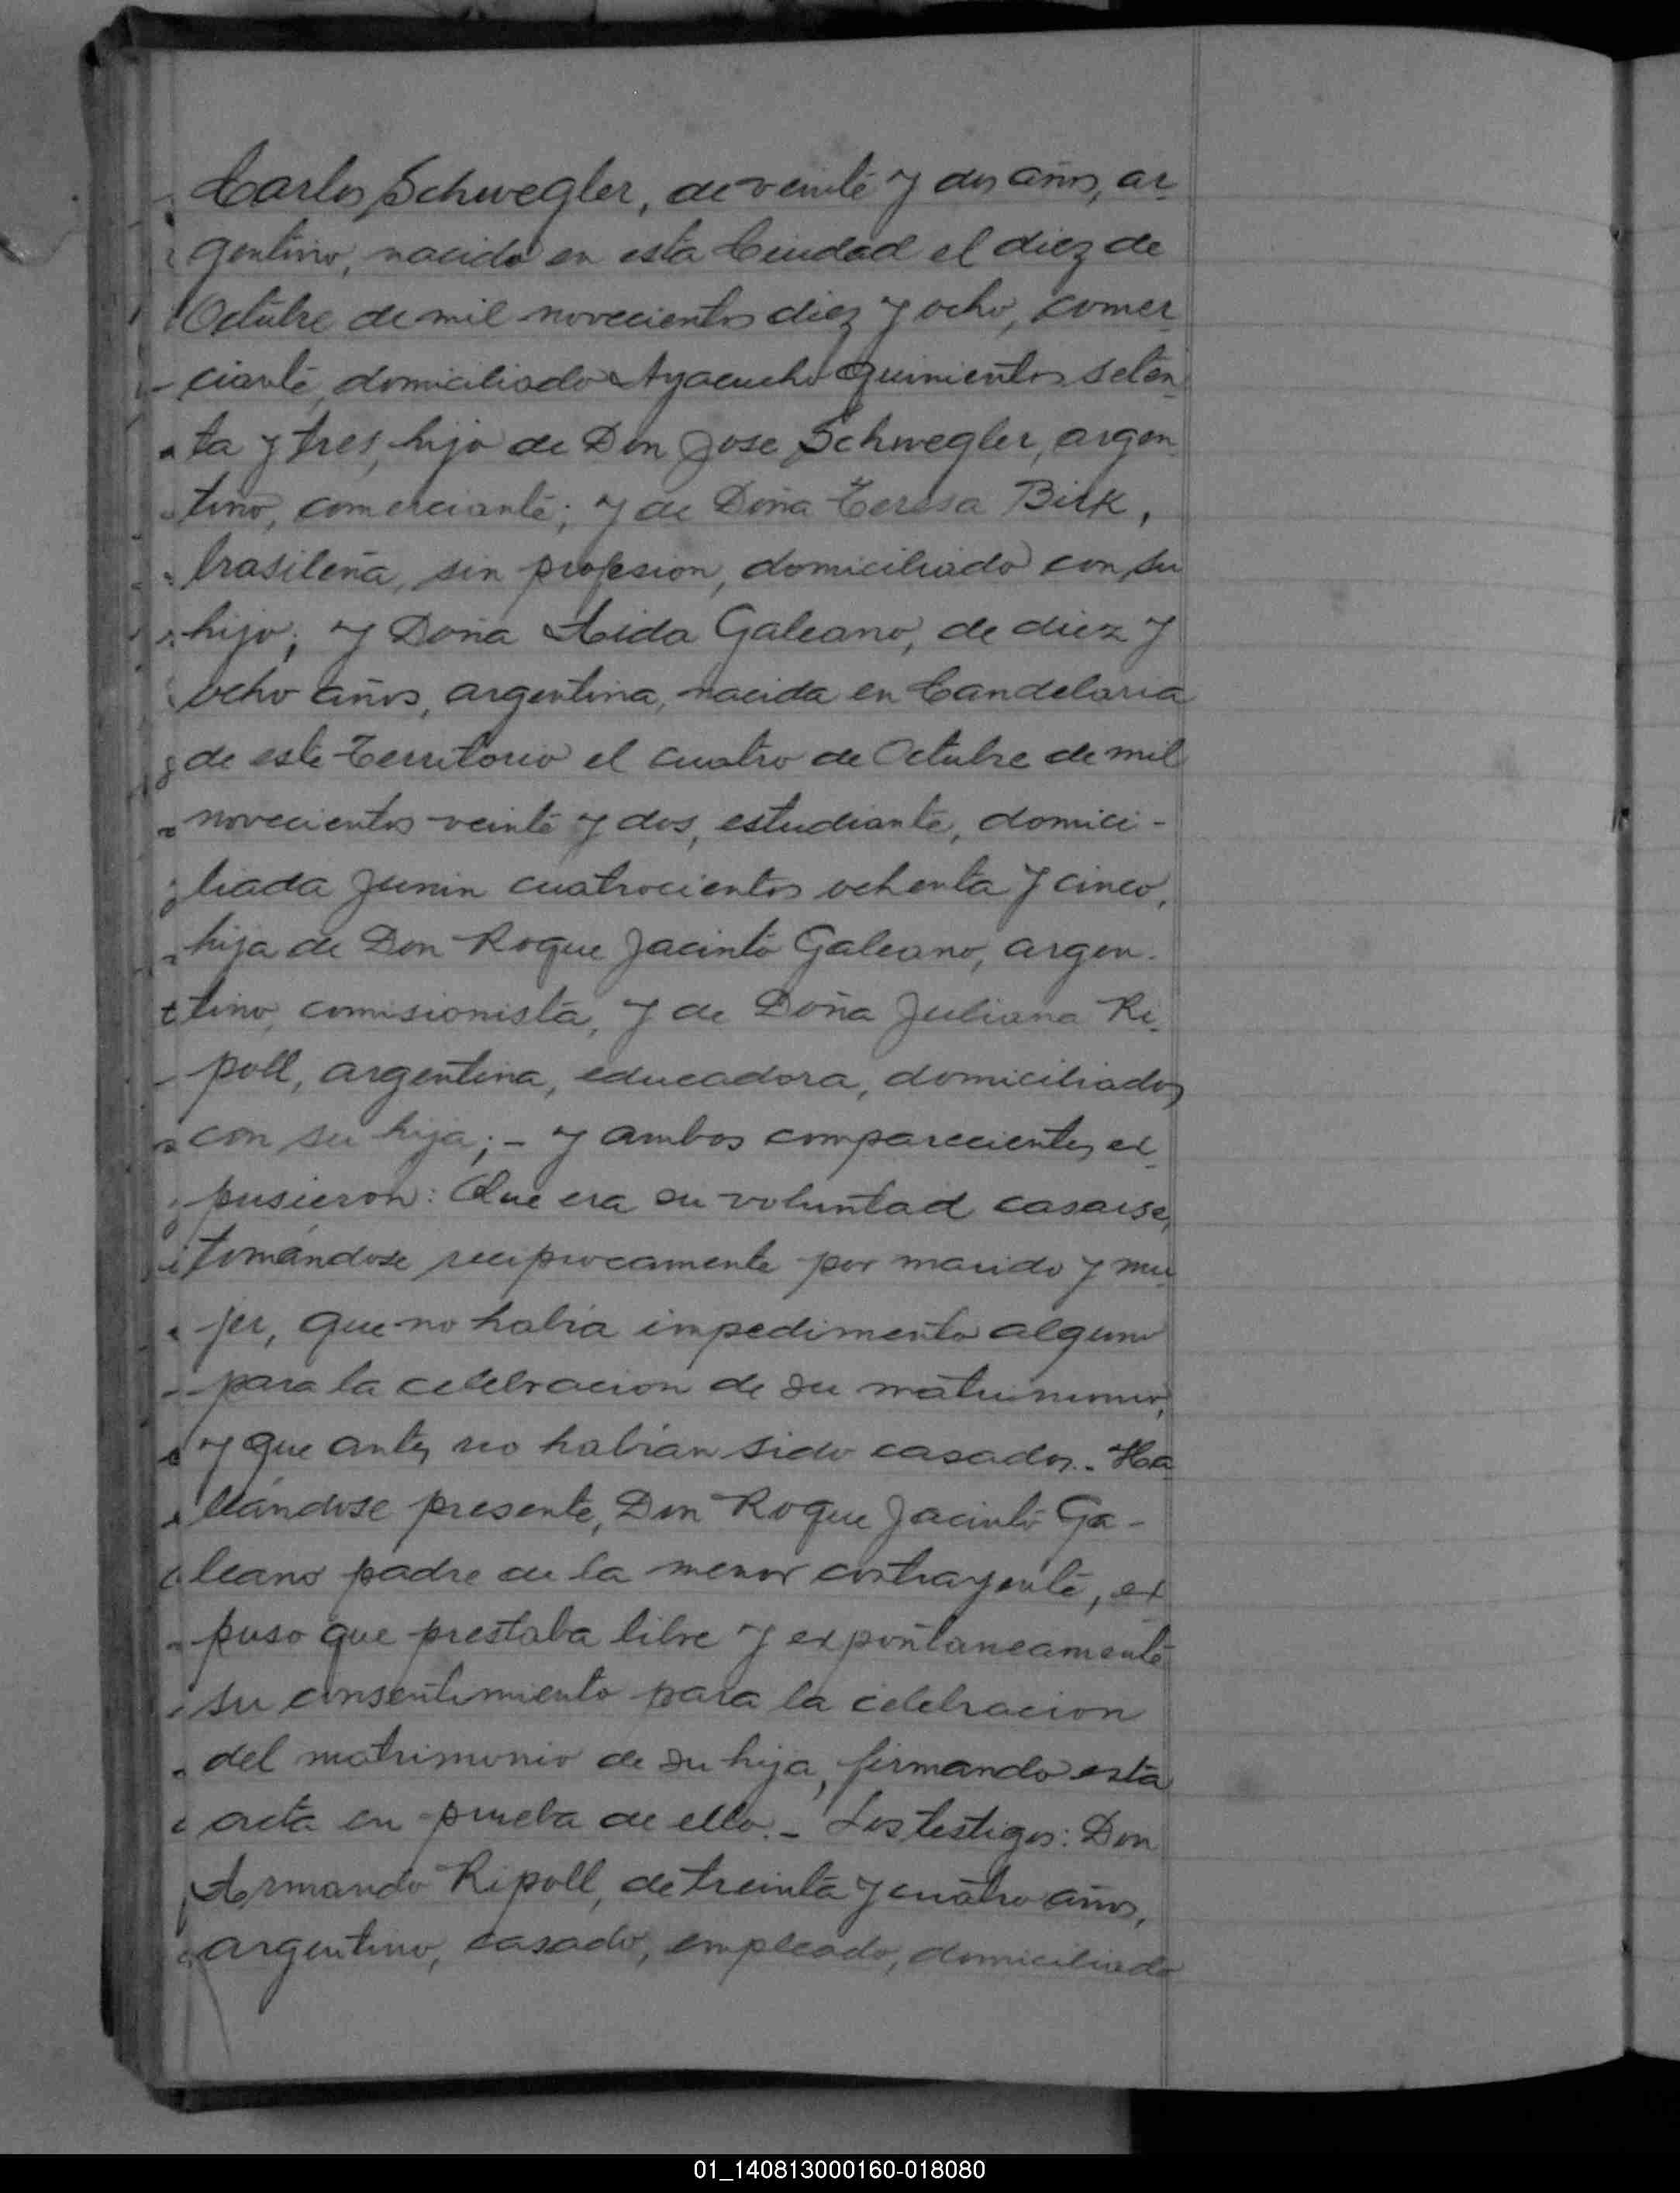 Carlos Schwegler, de veinte y dos años, ar-
gentino, nacido en esta Ciudad el diez de
Octubre de mil novecientos diez y ocho, comer-
ciante, domiciliado Ayacucho quinientos seten-
ta y tres, hijo de Don Jose Schwegler, argen-
tino, comerciante; y de Doña Teresa Birk,
brasileña, sin profesion, domiciliado con su
hijo; y Doña Aida Galeano, de diez y
ocho años, argentina, nacida en Candelaria
de este Territorio el cuatro de Octubre de mil
novecientos veinte y dos, estudiante, domici-
liada Junin cuatrocientos ochenta y cinco,
hija de Don Roque Jacinto Galeano, argen-
tino, comisionista, y de Doña Juliana Ri-
poll, argentina, educadora, domiciliados
con su hija; - y ambos comparecientes ex-
pusieron: Que era su voluntad casarse,
tomándose reciprocamente por marido y mu-
jer, que no habia impedimento alguno
para la celebracion de su matrimonio,
y que antes no habian sido casados.- Ha-
llándose presente, Don Roque Jacinto Ga-
leano padre de la menor contrayente, ex-
puso que prestaba libre y expontaneamente
su consentimiento para la celebracion
del matrimonio de su hija, firmando esta
acta en prueba de ello.- Los testigos: Don
Armando Ripoll, de treinta y cuatro años,
argentino, casado, empleado, domiciliado
01_140813000160-018080